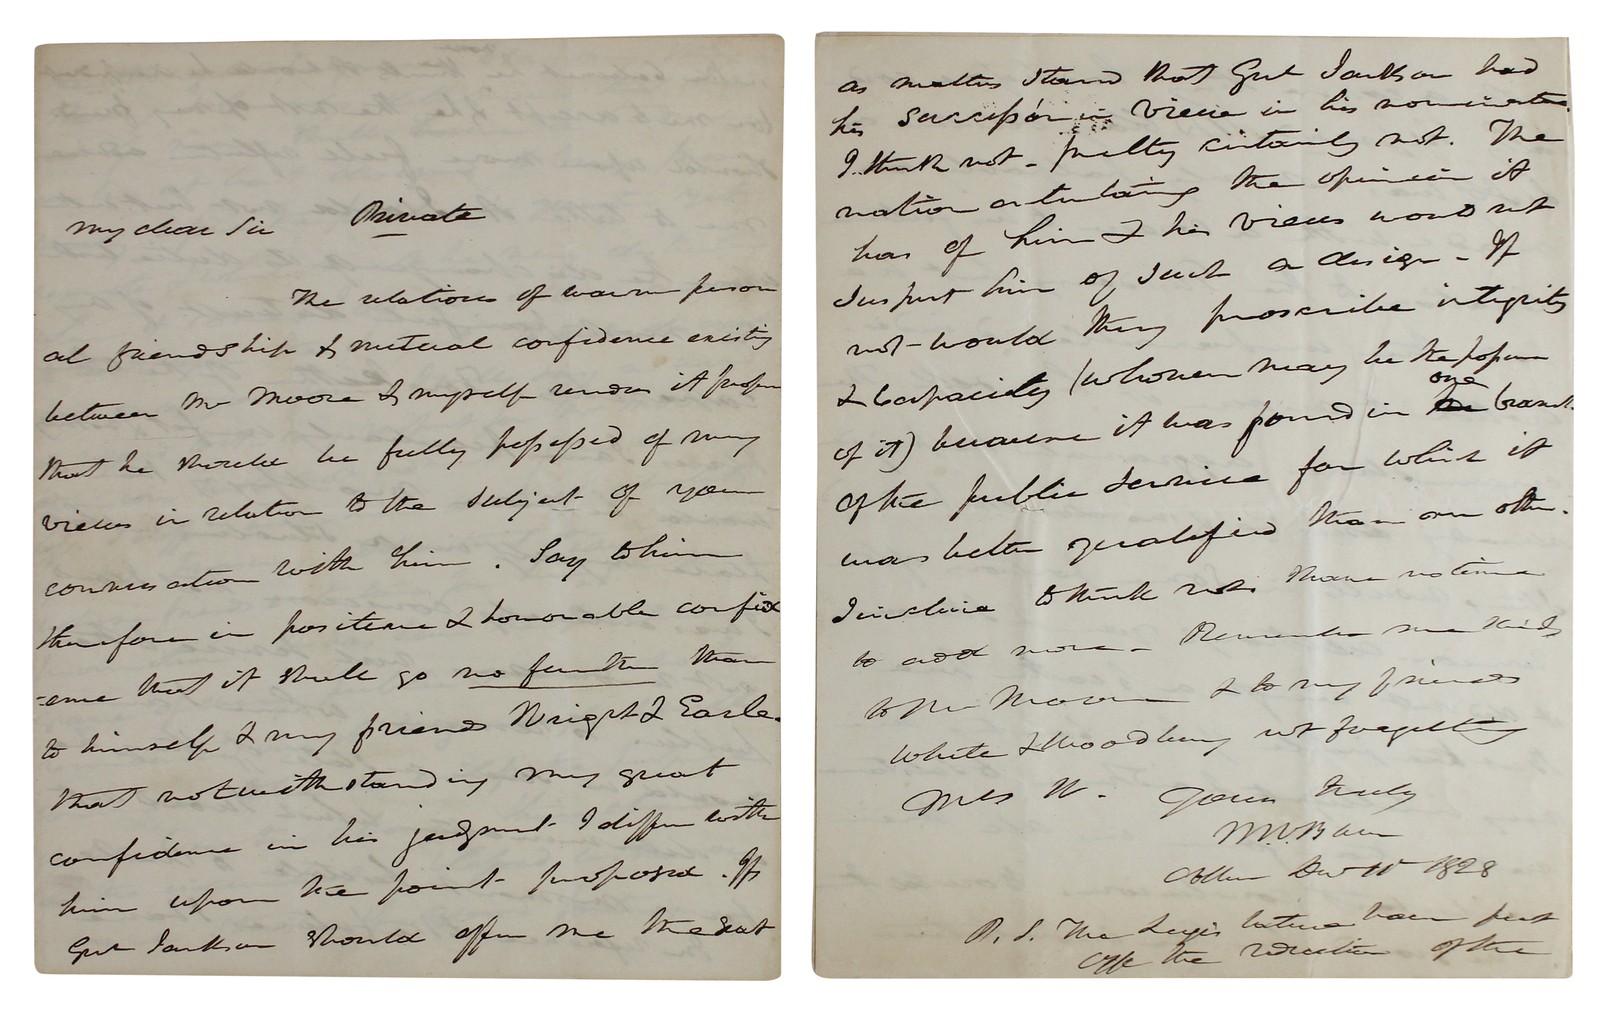 Private
My dear Sir
The relations of warm person
al friendship & mutual confidence existing
between Mr Moore & myself renders it proper
that he should be fully possessed of my
views in relation to the subject of your
conversation with him. Say to him
therefore in positive & honorable confid
-ence that it shall go no further than
to himself & my friends Wright & Earle.
that notwithstanding my great
confidence in his judgment I differ with
him upon the point proposed. If
Genl Jackson should offer me the seat
as matters stand that Genl Jackson had
his succession in view in his nomination
I think not - pretty certainly not. The
nation entertaining the opinion it
has of him & his views would not
suspect him of such a design - If
not - would they proscribe integrity
& capacity (whoever may be the
of it) because it was found in one branch
of the public service for which it
was better qualified than any other.
I incline to think not. I have no time
to add more - Remember me kindly
to Mr & to my friends
White & Woodbury not forgetting
Mrs W. Yours truly
M.V.Buren
1828
P.S. The Legislature have put
off the of the